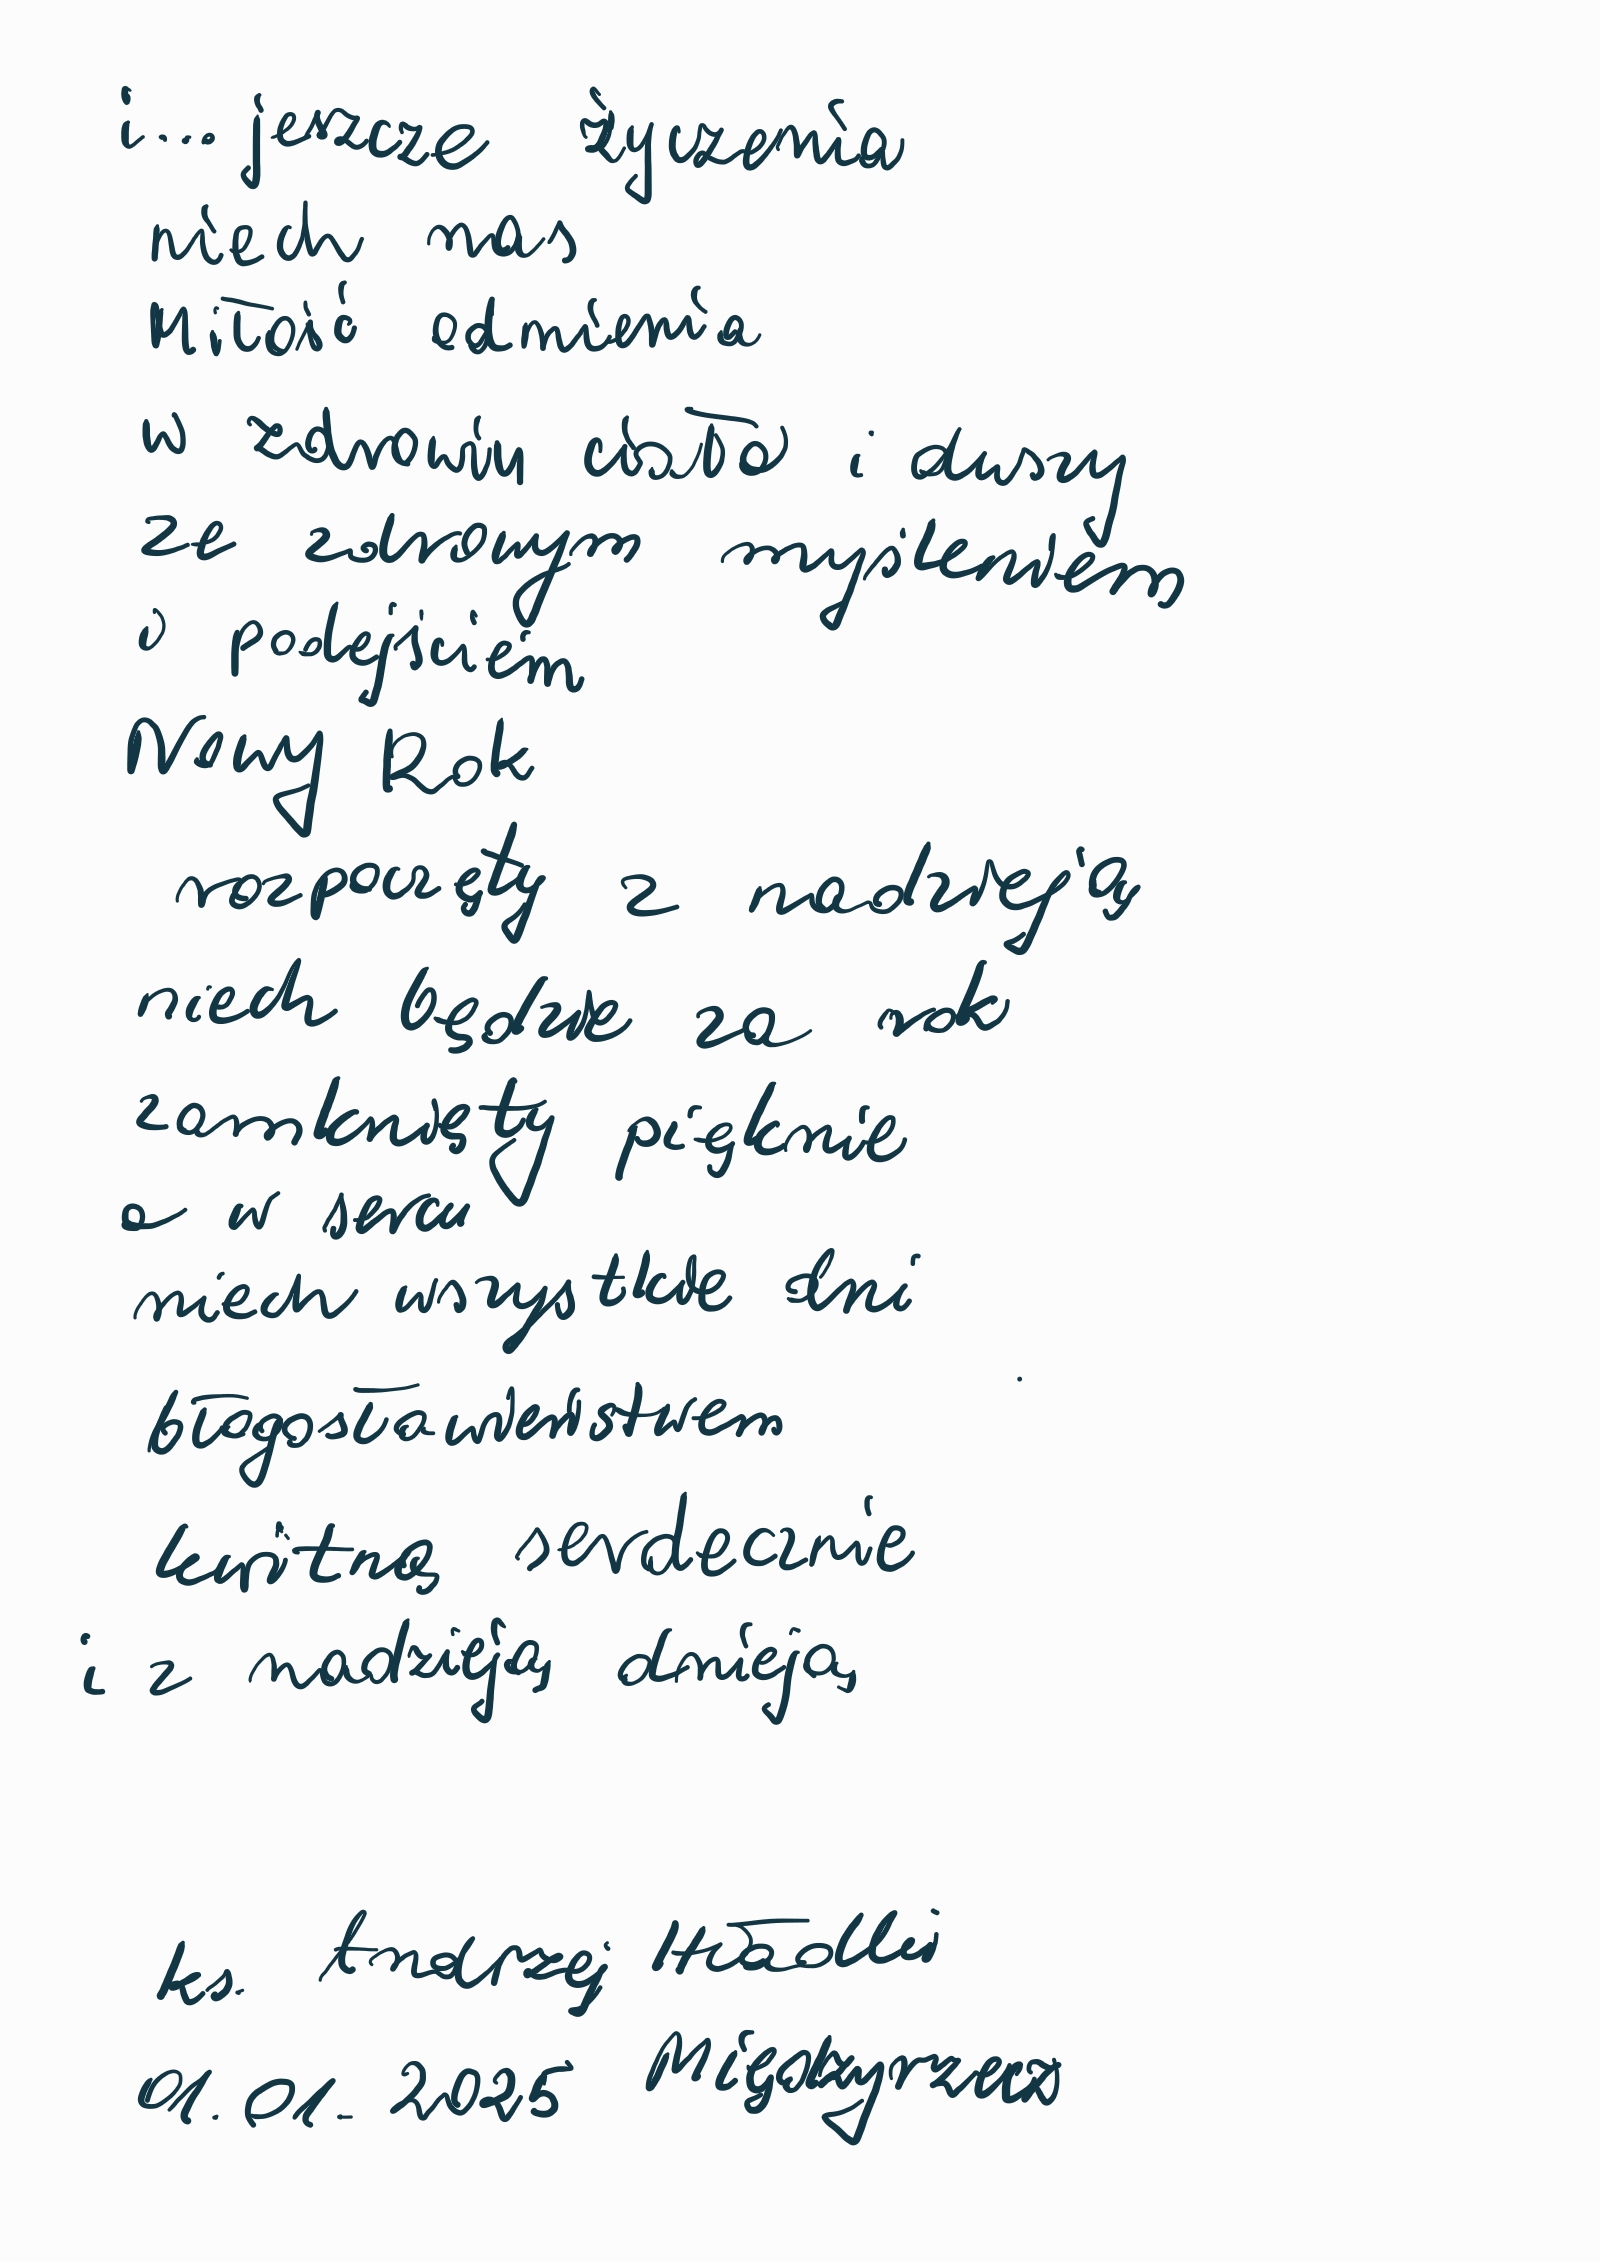 i... jeszcze życzenia
niech nas
Miłość odmienia
w zdrowiu ciała i duszy
ze zdrowym myśleniem
i podejściem
Nowy Rok
rozpoczęty z nadzieją
niech będzie za rok
zamknięty pięknie
a w sercu
niech wszystkie dni
błogosławieństwem
kwitną serdecznie
i z nadzieją dnieją
ks. Andrzej
01.01.2025 Międzyrzecz